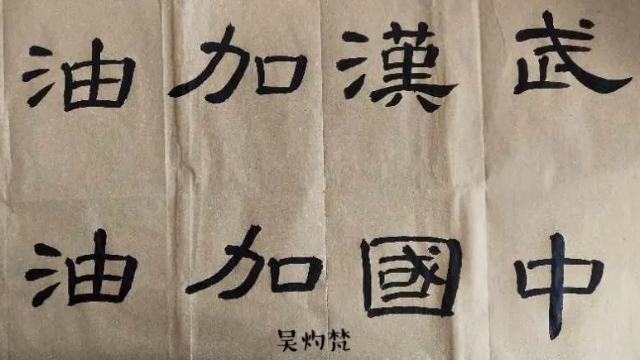 武漢加油
中國加油
吴灼梵